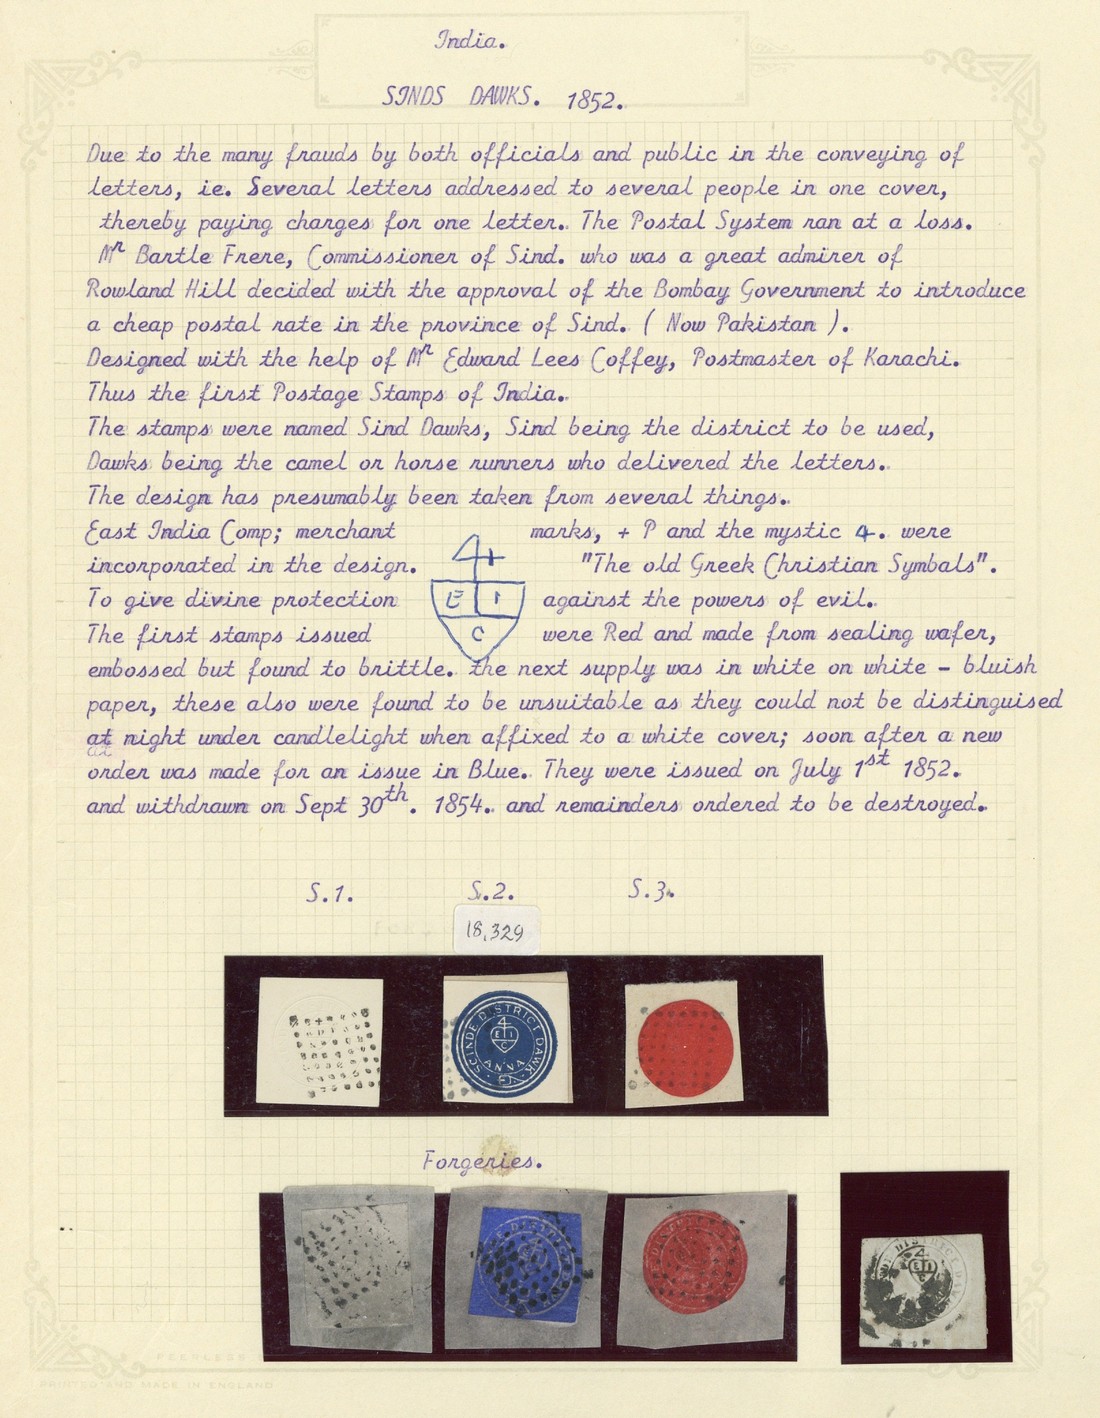 India.
SINDS DAWKS. 1852.
Due to the many frauds by both officials and public in the conveying of
letters, ie. Several letters addressed to several people in one cover,
thereby paying charges for one letter. The Postal System ran at a loss.
Mr Bartle Frere, Commissioner of Sind. who was a great admirer of
Rowland Hill decided with the approval of the Bombay Government to introduce
a cheap postal rate in the province of Sind. ( Now Pakistan ).
Designed with the help of Mr Edward Lees Coffey, Postmaster of Karachi.
Thus the first Postage Stamps of India.
The stamps were named Sind Dawks, Sind being the district to be used,
Dawks being the camel or horse runners who delivered the letters.
The design has presumably been taken from several things.
East India Comp; merchant marks, + P and the mystic 4. were
incorporated in the design. "The old Greek Christian Symbals".
To give divine protection against the powers of evil.
The first stamps issued were Red and made from sealing wafer,
4+
E I
C
embossed but found to brittle. the next supply was in white on white - bluish
paper, these also were found to be unsuitable as they could not be distinguised
at night under candlelight when affixed to a white cover; soon after a new
order was made for an issue in Blue. They were issued on July 1st 1852.
and withdrawn on Sept 30th. 1854. and remainders ordered to be destroyed.
S.1. S.2. S.3.
18,329
SCINDE DISTRICT DAWK
4
E I
C
½ ANNA
Forgeries.
DISTRICT
4
E I
C
PEERLESS
PRINTED AND MADE IN ENGLAND